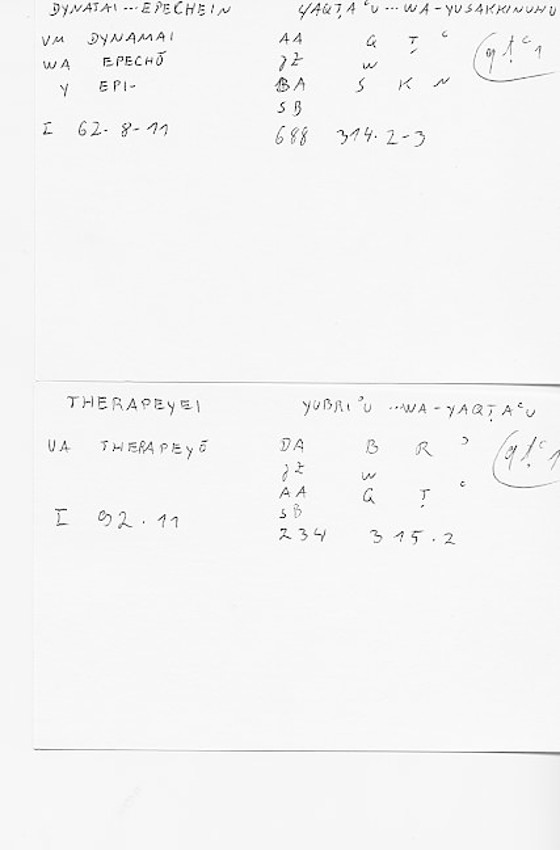 DYNATAI ... EPECHEIN YAQṬAʿU ... WA-YUSAKKINUHU
VM DYNAMAI AA Q Ṭ ʿ
WA EPECHŌ γZ W
Y EPI- BA S K N
SB
I 62. 8-11 688 314. 2-3
qṭʿ1
THERAPEYEI YUBRIʾU ...WA-YAQṬAʿU
VA THERAPEYŌ DA B R ʾ
γZ W
AA Q Ṭ ʿ
SB
I 92. 11 234 315. 2
qṭʿ1